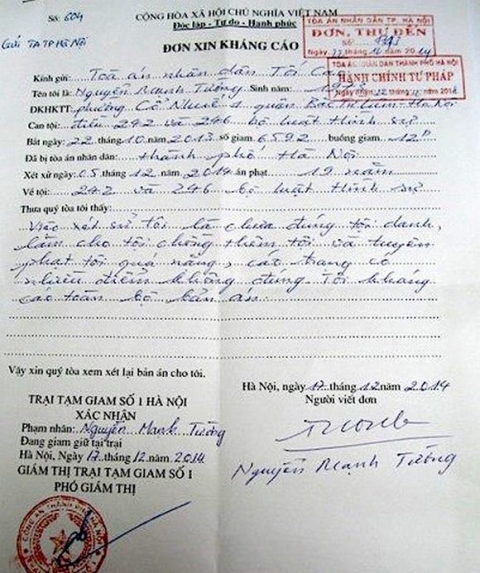 Số: 604
CỘNG HÒA XÃ HỘI CHỦ NGHĨA VIỆT NAM
Độc lập - Tự do - Hạnh phúc
Gửi TATP Hà Nội
TÒA ÁN NHÂN DÂN TP. HÀ NỘI
ĐƠN, THƯ ĐẾN
Số:
Ngày 22 tháng 12 năm 2014
ĐƠN XIN KHÁNG CÁO
TÒA ÁN NHÂN DÂN THÀNH PHỐ HÀ NỘI
HÀNH CHÍNH TƯ PHÁP
Kính gửi: Toà án nhân dân Tối Cao
Tên tôi là: Nguyễn Mạnh Tường Sinh năm:
ĐKHKTT: phường Cổ Nhuế 1 quận Bắc Từ Liêm - Hà Nội
Can tội: điều 242 và 246 bộ luật hình sự
Bắt ngày 22 tháng 10 năm 2013 số giam 6592 buồng giam 12
Đã bị tòa án nhân dân: thành phố Hà Nội
Xét xử ngày 05 tháng 12 năm 2014 án phạt 19 năm
Về tội: 242 và 246 bộ luật hình sự
Thưa quý tòa tôi thấy:
Việc xét sử tôi là chưa đúng tội danh,
làm cho tôi chồng thêm tội và tuyên
phạt tôi quá nặng, cáo trạng có
nhiều điểm không đúng. Tôi kháng
cáo toàn bộ bản án
Vậy xin quý tòa xem xét lại bản án cho tôi.
TRẠI TẠM GIAM SỐ 1 HÀ NỘI
XÁC NHẬN
Phạm nhân: Nguyễn Mạnh Tường
Đang giam giữ tại trại
Hà Nội, Ngày 17 tháng 12 năm 2014
GIÁM THỊ TRẠI TẠM GIAM SỐ 1
PHÓ GIÁM THỊ
Hà Nội, ngày 17 tháng 12 năm 2014
Người viết đơn
Nguyễn Mạnh Tường